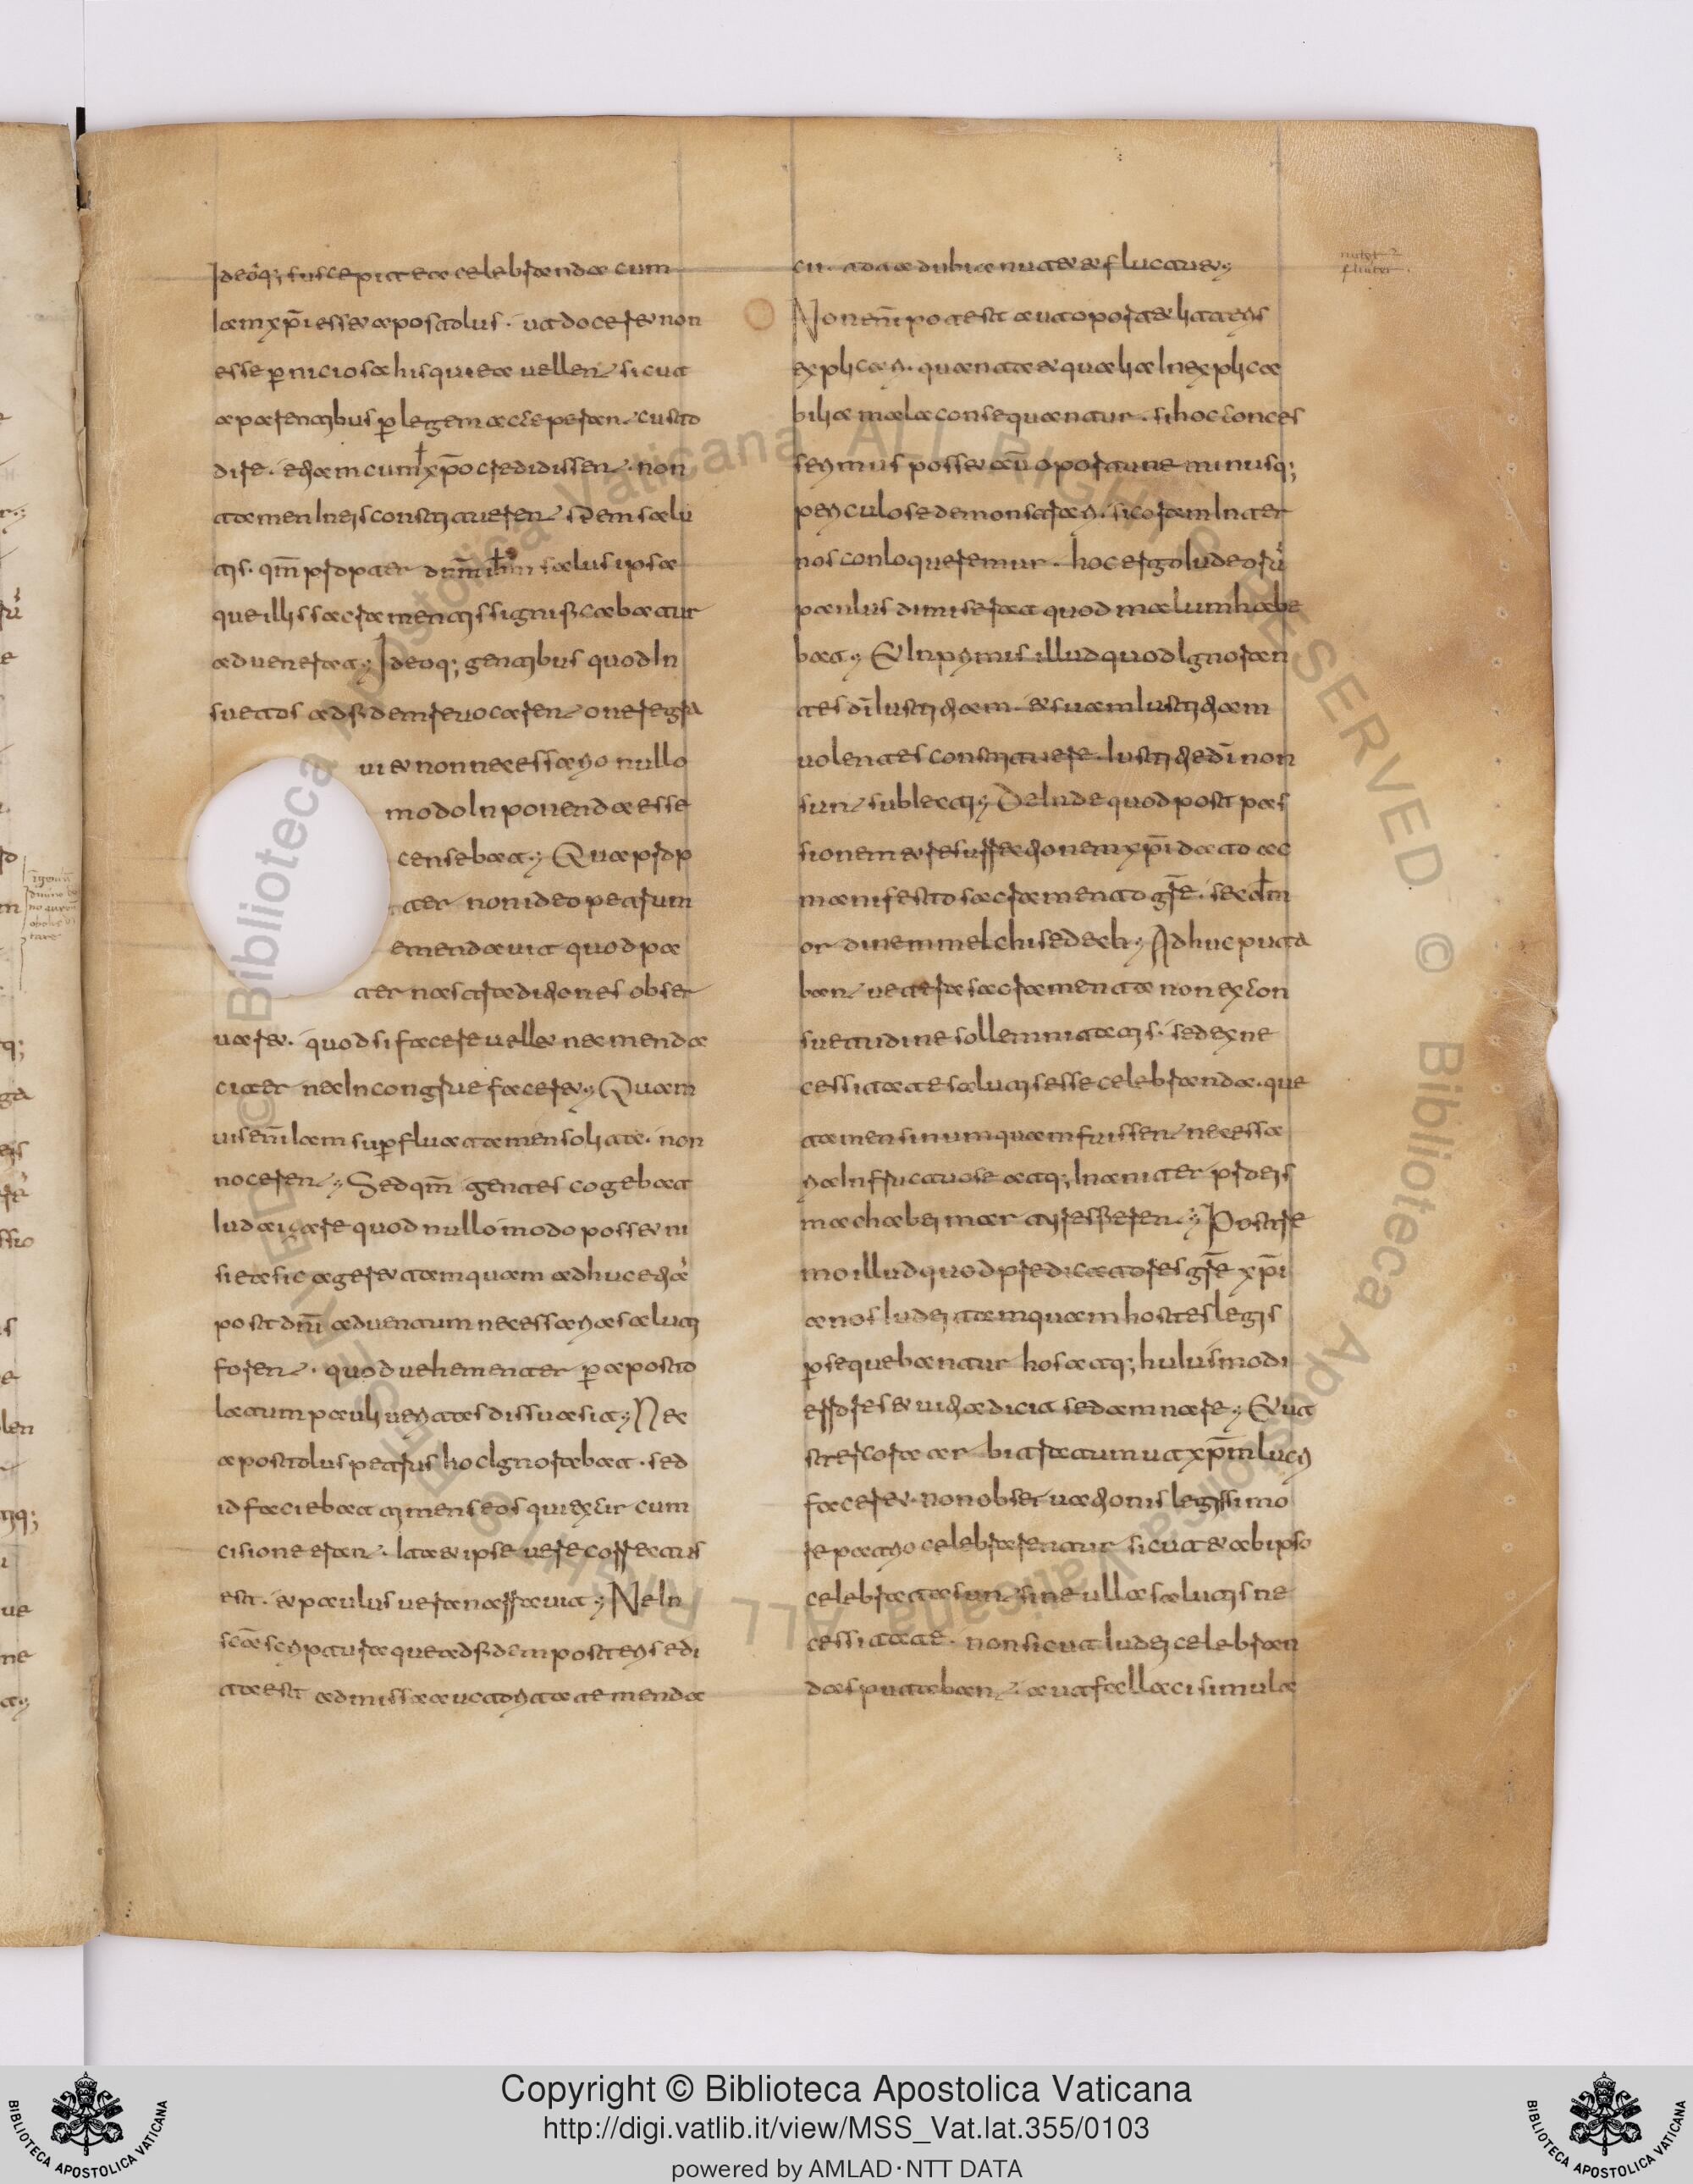 Ideoq; suscepit ea celebranda cum
iam xpi esset apostolus. ut doceret non
esse pniciosa his qui ea vellent sicut
a parentibus p legem acceperant custo
dire. etiam cum xpo credidissent. non
tamen in eis constituerent spem salu
tis. qm ppter dnm ihm salus ipsa
que illis sacramentis significabatur
advenerat; Ideoq; gentibus quod in
suetos ad fidem revocarent onere gra
vi et non necessario nullo
modo inponenda esse
censebat; Quapp
ter non ideo petrum
emendavit quod pa
ternas traditiones obser
varet. quod si facere vellet nec menda
citer nec incongrue faceret; Quam
vis enim iam supflua tamen solita. non
nocerent; Sed qm gentes cogebat
iudaizare quod nullo modo posset ni
si ea sic ageret tamquam adhuc etia
post dni adventum necessaria saluti
forent. quod vehementer p aposto
latum pauli veritas dissuasit; Nec
apostolus petrus hoc ignorabat. sed
id faciebat timens eos qui ex cir cum
cisione erant. Ita et ipse vere correctus
est. et paulus vera narravit; Ne in
sca scriptura que ad fidem posteris edi
ta est admissa auctoritate menda
cii. tota dubia nutet et fluctuet;
Non enim potest aut oportet litteris
explicari. quanta et qualia inexplica
bilia mala consequantur. si hoc conces
serimus posset au oportune minusq;
periculose demonstrari. si coram inter
nos conloqueremur. hoc ergo iudeoru
paulus dimiserat quod malum habe
bat; Et inprimis illud quod ignoran
tes di iustitiam. et suam iustitiam
volentes constituere. iustitie di non
sunt subiecti; Deinde quod post pas
sionem et resurrectionem xpi dato ac
manifesto sacramento gre. secdm
or dinem melchisedech; Adhuc puta
bant vetera sacramenta non ex con
suetudine sollemnitatis. sed ex ne
cessitate salutis esse celebranda. que
tamen si numquam fuissent necessa
ria infructuose atq; inaniter p eis
machabei martires fierent; Postre
mo illud quod predicatores gre xpi
anos iudei tamquam hostes legis
psequebantur hos atq; huiusmodi
errores et vitia dicit se damnare; Et ut
stercora ar bitratum ut xpm lucri
faceret. non observationis legis si mo
re patrio celebrarentur sicut et ab ipso
celebrata sunt sine ulla salutis ne
cessitate. non sicut iudei celebran
das putabant. aut fallaci simula
nutet
fluctet
Copyright © Biblioteca Apostolica Vaticana
http://digi.vatlib.it/view/MSS_Vat.lat.355/0103
powered by AMLAD·NTT DATA